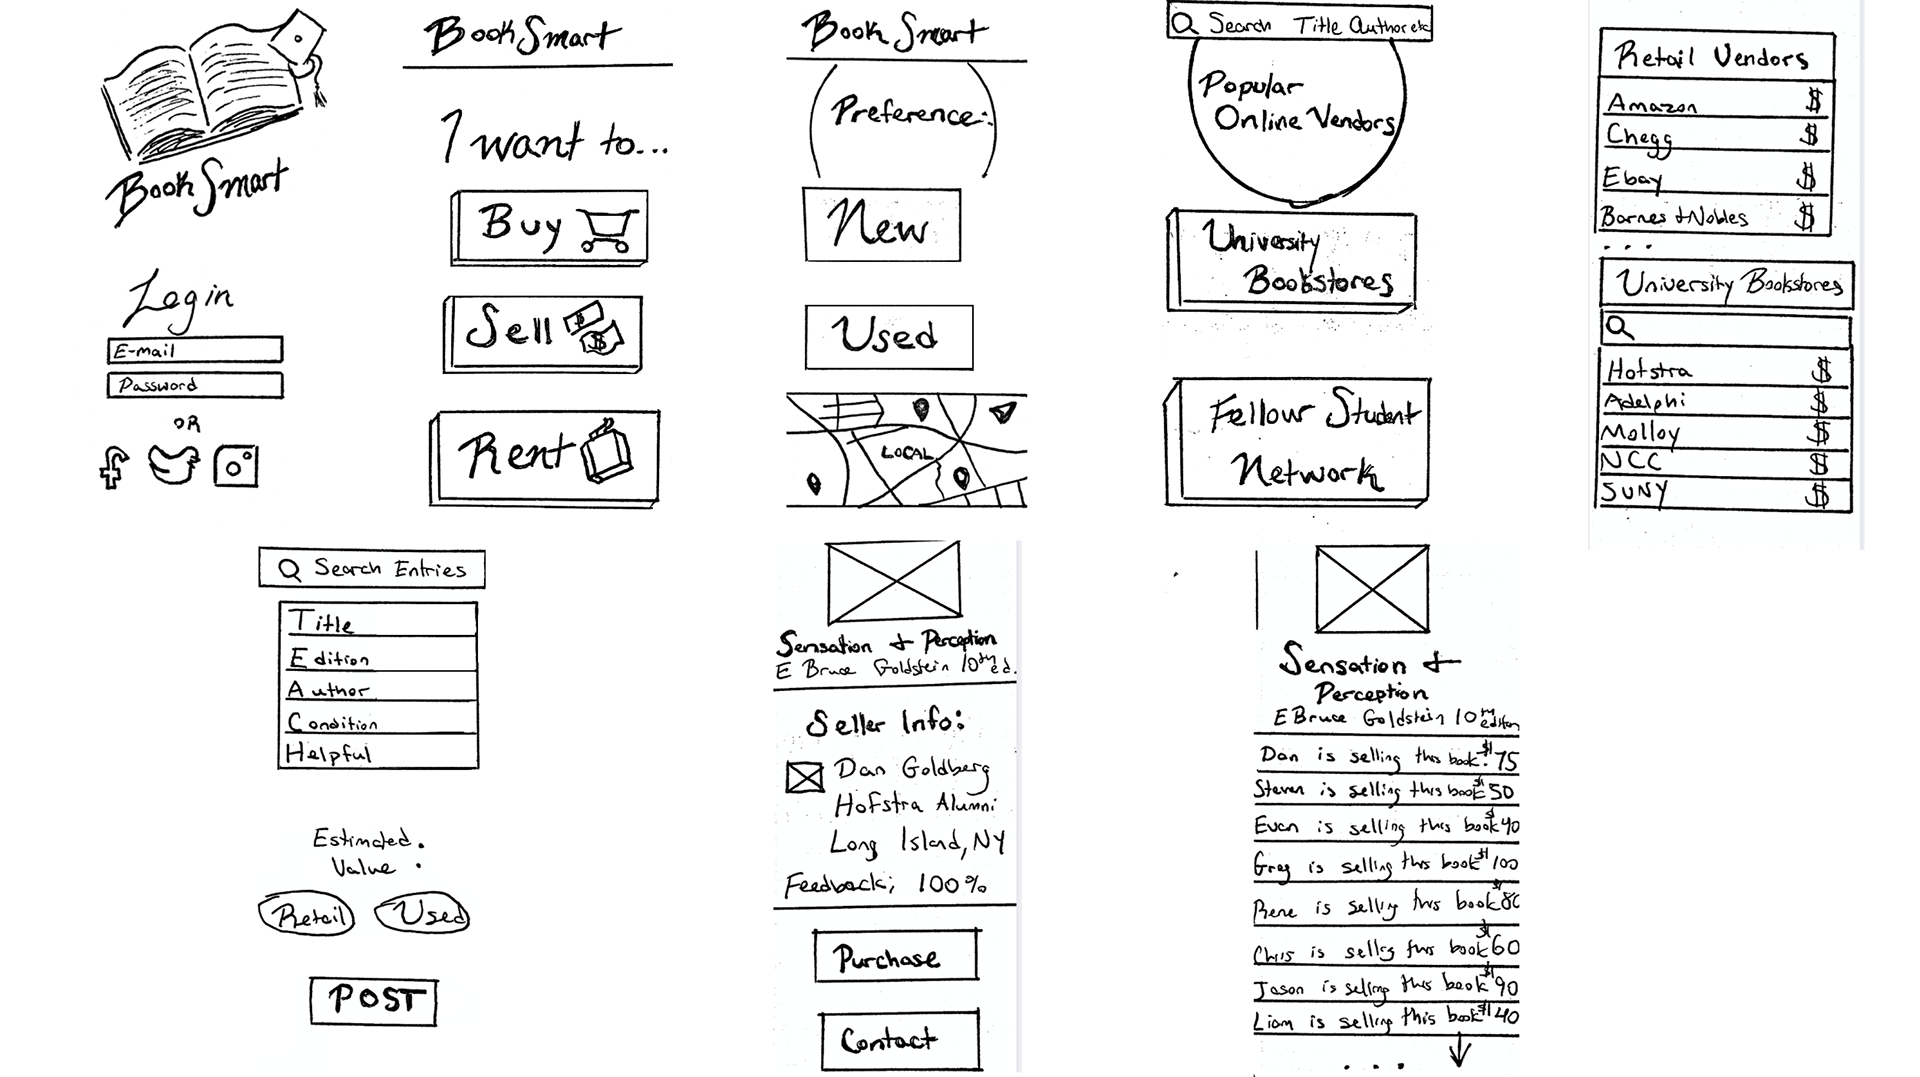 BookSmart
Login
E-mail
Password
OR
BookSmart
I want to...
Buy
Sell
$
$
Rent
Book Smart
Preference:
New
Used
LOCAL
Search Title Author etc
Popular
Online Vendors
University
Bookstores
Fellow Student
Network
Retail Vendors
Amazon $
Chegg $
Ebay $
Barnes + Nobles $
...
University Bookstores
Hofstra $
Adelphi $
Molloy $
NCC $
SUNY $
Search Entries
Title
Edition
Author
Condition
Helpful
Estimated
Value :
Retail Used
POST
Sensation + Perception
E Bruce Goldstein 10th ed.
Seller Info:
Dan Goldberg
Hofstra Alumni
Long Island, NY
Feedback; 100%
Purchase
Contact
Sensation +
Perception
E Bruce Goldstein 10th edition
Dan is selling this book: $75
Steven is selling this book $50
Evan is selling this book $40
Greg is selling this book $100
Rene is selling this book $80
Chris is selling this book $60
Jason is selling this book $90
Liam is selling this book $140
...